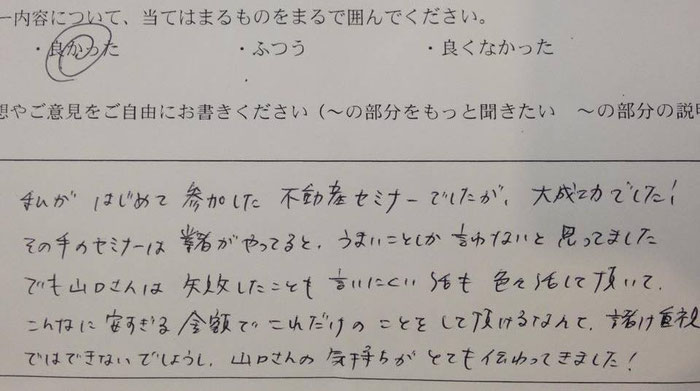 ー内容について、当てはまるものをまるで囲んでください。
・良かった ・ふつう ・良くなかった
想やご意見をご自由にお書きください（～の部分をもっと聞きたい ～の部分の説明
私が はじめて 参加した 不動産セミナーでしたが、大成功でした！
その手のセミナーは 業者がやってると、うまいことしか 言わないと 思ってました
でも山口さんは 失敗したことも 言いにくい 話も 色々話して頂いて、
こんなに 安すぎる 金額で これだけの ことをして頂けるなんて、儲け重視
ではできないでしょうし、山口さんの 気持ちが とても伝わってきました！